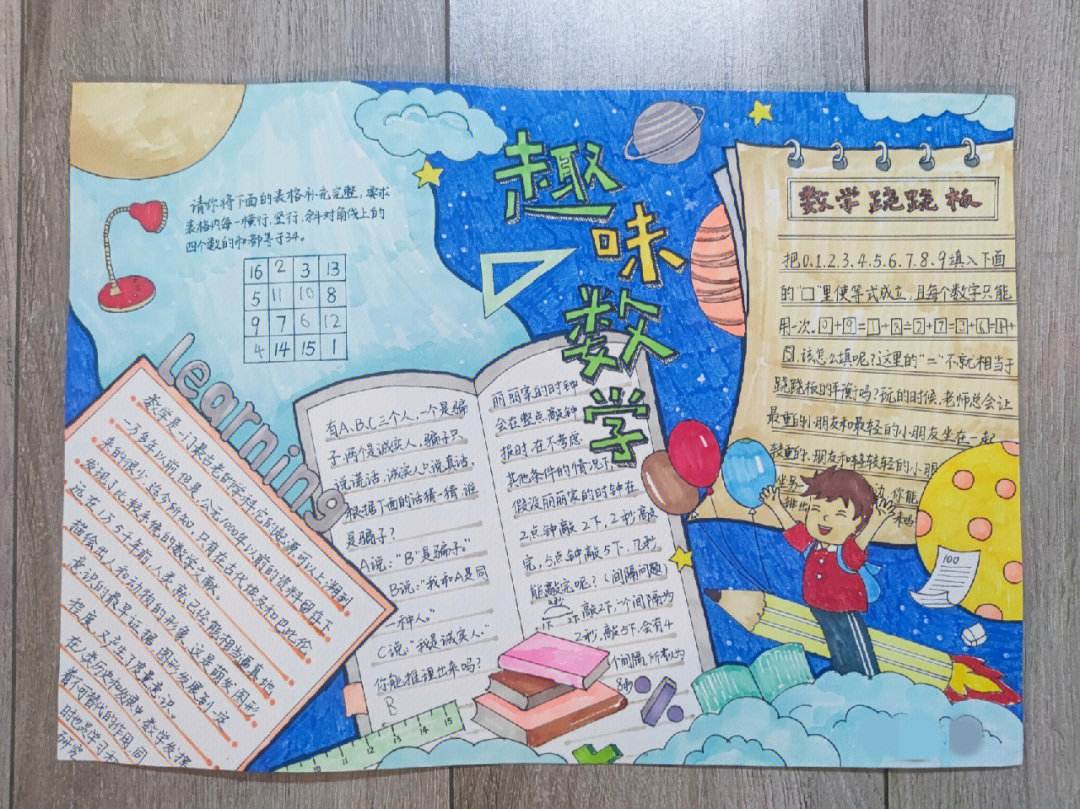 趣味数学
请你将下面的表格补充完整，要求
表格内每一横行、竖行、斜对角线上的
四个数的和都等于34。
16 2 3 13
5 11 10 8
9 7 6 12
4 14 15 1
Learning
数学是一门最古老的学科，它的起源可以上溯到
一万多年以前。但是，公元1000年以前的资料留存下
来的很少。迄今所知，只有在古代埃及和巴比伦
发现了比较系统的数学文献。
远在1万5千年前，人类就已经能相当逼真地
描绘出人和动物的形象。这是萌发图形
意识的最早证据。
在人类历史
研究
有A、B、C三个人，一个是骗
子，两个是诚实人，骗子只
说谎话，诚实人只说真话，
根据下面的话猜一猜，谁
是骗子？
A说：“B是骗子。”
B说：“我和A是同
一种人。”
C说：“我是诚实人。”
你能推理出来吗？
B
丽丽家的时钟
会在整点敲钟
报时，在不考虑
其他条件的情况下，
假设丽丽家的时钟在
2点钟敲2下，2秒敲
完，5点钟敲5下，几秒
能敲完呢？（间隔问题
敲2下，一个间隔为
2秒，敲5下，会有4
个间隔，所以为
8秒
数学跷跷板
把0、1、2、3、4、5、6、7、8、9填入下面
的“口”里使等式成立，且每个数字只能
用一次。0+9=1+8=2+7=3+6=4+
5，该怎么填呢？这里的“=”不就相当于
跷跷板的平衡吗？玩的时候，老师总会让
最重的小朋友和最轻的小朋友坐在一起
较重的小朋友和较轻的小朋
你能
排出
来吗
100
10 11 12 13 14 15